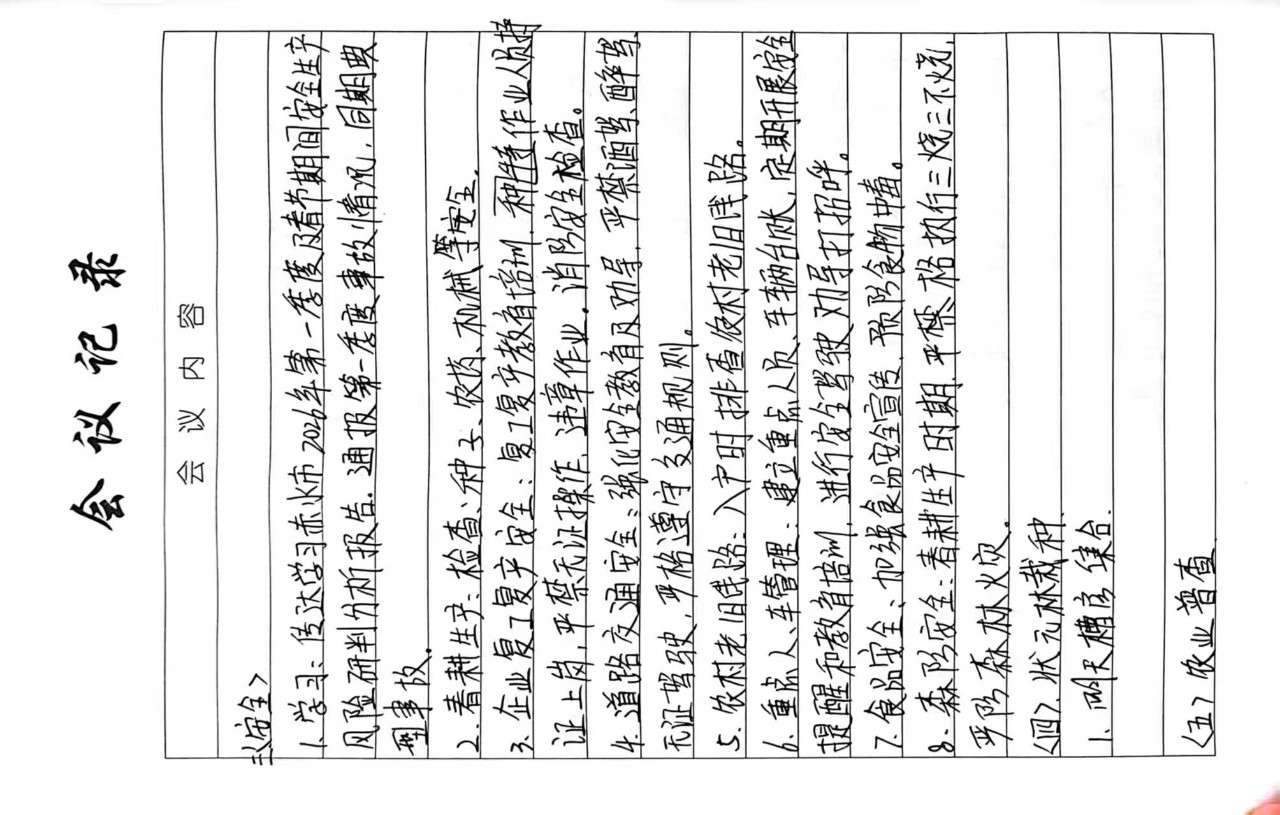 会议记录
会议内容
三〈安全〉
1. 学习：传达学习赤水市2026年第一季度及春节期间安全生产
风险研判分析报告。通报第一季度事故情况，同期典
型事故。
2. 春耕生产：检查：种子、农药、机械等安全。
3. 企业复工复产安全：复工复产教育培训，种特作业人员持
证上岗，严禁无证操作、违章作业。消防安全检查。
4. 道路交通安全：强化安全教育及劝导，严禁酒驾、醉驾、
无证驾驶，严格遵守交通规则。
5. 农村老旧民路：入户时排查农村老旧民路。
6. 重点人、车管理：建立重点人员、车辆台账，定期开展安全
提醒和教育培训，进行安全驾驶劝导打招呼。
7. 食品安全：加强食品安全宣传，预防食物中毒。
8. 森防安全：春耕生产时期，严禁、严格执行三烧三不烧，
严防森林火灾。
〈四〉状元林栽种
1. 明天槽房集合。
〈五〉农业普查